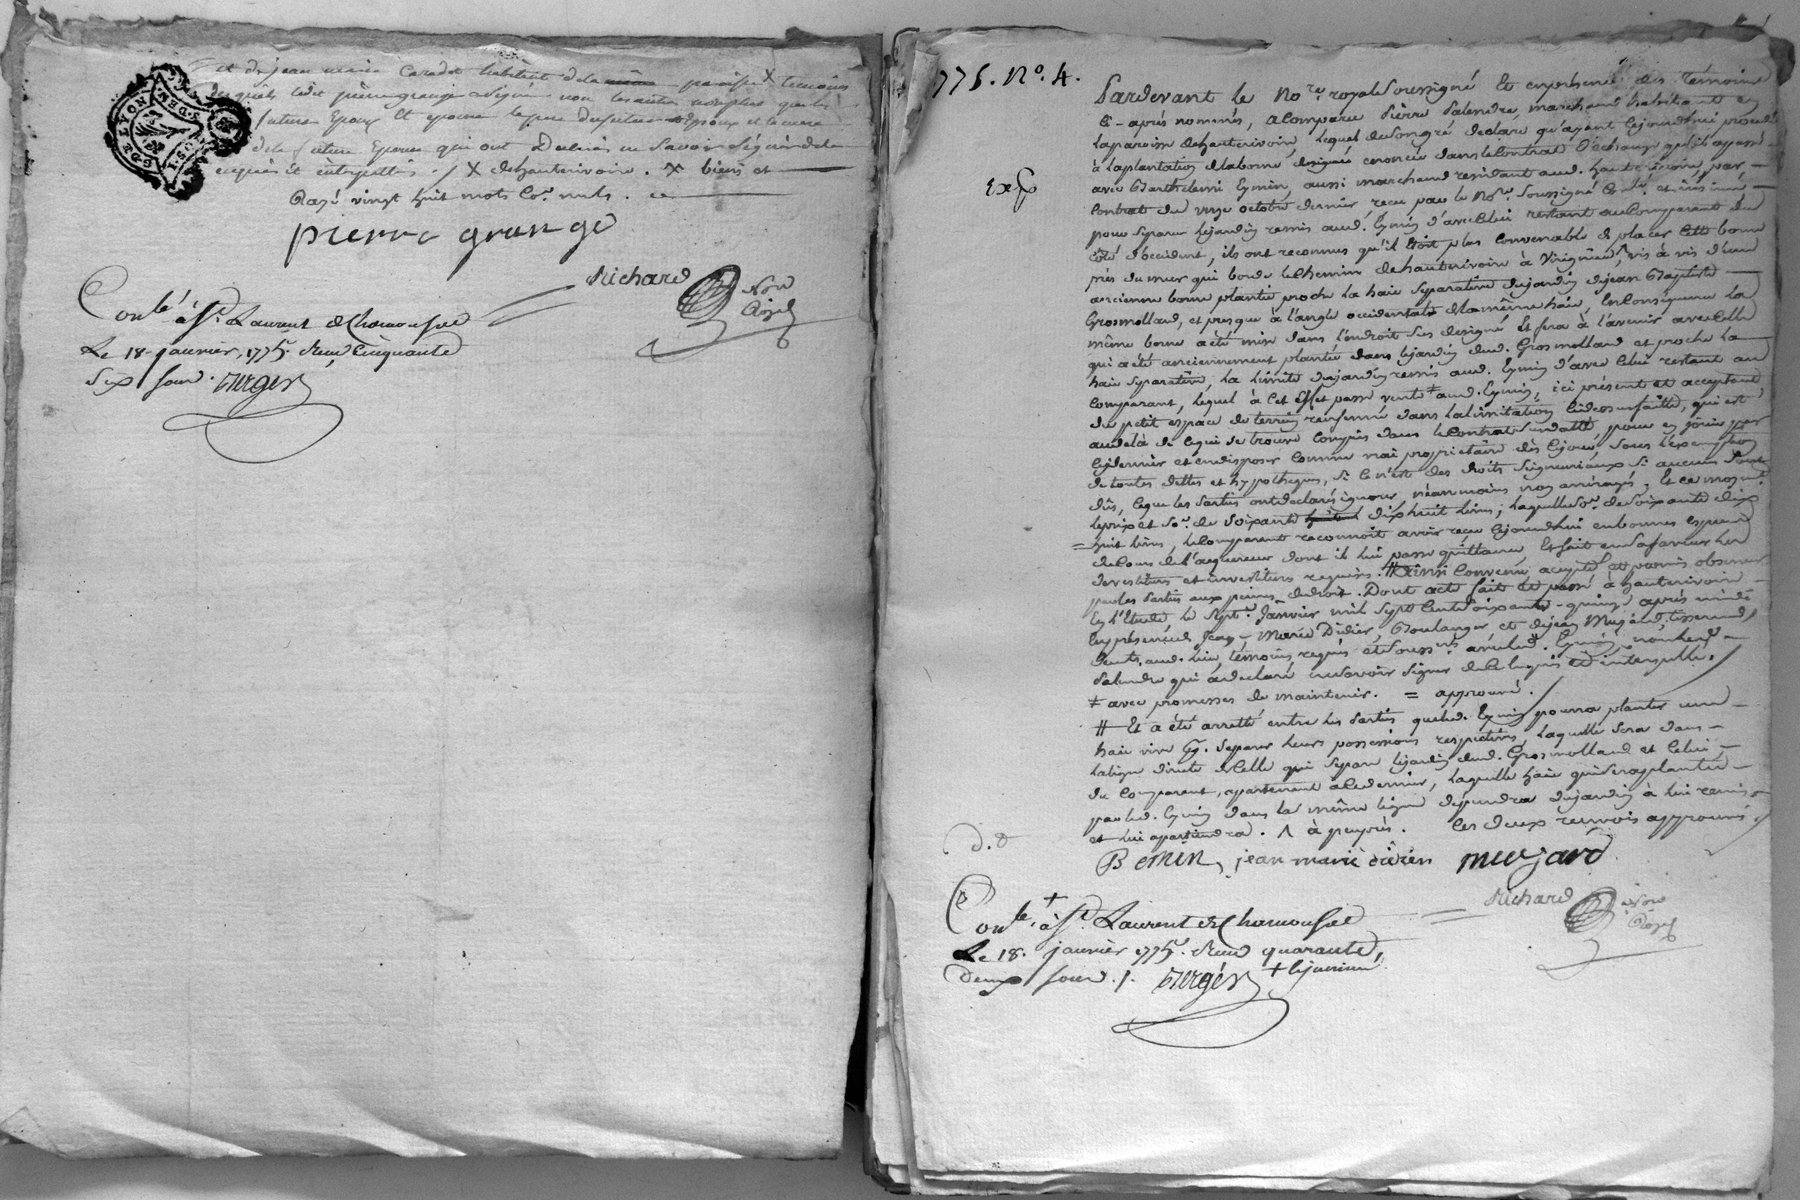 et de jean marie Caradot habitant de la même paroisse X témoins
requis ledit pierre grange a signé non les autres non plus que les
futurs Epoux et epouse le pere du futur Epoux et la mere
de la future Epouse qui ont Declaré ne Savoir Signer de ce
enquis et interpellés ./. X de hauterivoire . X biens et
Rayé vingt huit mots Co.e nuls . ce
pierre grange
Richard
No.re
Royal
Con.lé à S.t Laurent de Chamousset
Le 18. janvier, 1775. Reçu Cinquante
Six sous .
G DE LYON
1775. N.o 4.
Exp.
Pardevant le No.re royal soussigné Et en présence des témoins
ci-après nommés, a Comparu Pierre Salendre, marchand habitant en
la paroisse de hauterivoire, lequel de son gré declare qu'ayant cejourd'hui procédé
à la plantation de la borne designée enoncée dans le Contrat d'échange qu'il a passé
avec Barthelemi Eymin, aussi marchand residant aud. hauterivoire, par
Contrat du onze octobre dernier, reçu par le No.re soussigné
pour séparer le jardin remis aud. Eymin d'avec celui restant au Comparant du
côté d'occident, ils ont reconnus qu'il étoit plus convenable de placer cette borne
près du mur qui borde le chemin de hauterivoire à Virigneux, vis à vis d'une
ancienne borne plantée proche la haie séparative du jardin de jean Baptiste
Grosmolland, et presque à l'angle occidental de la même haie, En Conséquence la
même borne a été mise dans l'endroit sus designé Et fera à l'avenir avec celle
qui a été anciennement plantée dans le jardin dud. Grosmolland et proche la
haie séparative, la limite du jardin remis aud. Eymin d'avec celui restant au
Comparant, lequel à cet effet passe vente ≠ aud. Eymin, ici présent et acceptant
du petit espace de terrein renfermé dans la limitation ci dessus faite, qui est
audelà de ce qui se trouve compris dans le Contrat susdatté, pour en jöuir par
ce dernier et en disposer comme vrai propriétaire dès ce jour, sous l'exemption
de toutes dettes et hypotheques, si ce n'est des droits seigneuriaux si aucuns sont
dûs, ce que les Parties ont déclarés ignorer, néanmoins non arréragés, Et ce moyen.t
le prix et So.e de Soixante dix huit livres ; laquelle So.e de Soixante dix
= huit livres, le Comparant reconnoit avoir reçu cejourd'hui en bonnes especes
de Cours de l'acquereur dont il lui passe quittance, Et fait en sa faveur les
devestitures et investitures requises . # Ainsi Convenu accepté et promis observer
par les Parties aux peines de droit . Dont acte fait et passé à hauterivoire
En l'Etude le sept.e Janvier mil sept cent soixante-quinze après midi
En présence de Jean-Marie Didier, Boulanger, et de jean Mujard, tisserand,
demts. aud. lieu, témoins requis et Souss.nés avec led. Eymin, non led.
Salendre qui a declaré ne savoir signer de ce enquis et interpellé .
≠ avec promesses de maintenir . = approuvé .
# Et a été arretté entre les Parties que led. Eymin pourra planter une
haie vive pour séparer leurs possessions respectives, laquelle sera dans
la ligne droite de celle qui sépare le jardin dud. Grosmolland et celui
du Comparant, apartenant à ce dernier, laquelle haie qui sera plantée
par led. Eymin dans la même ligne dépendra du jardin à lui remis
et lui apartiendra . Λ à peu près . les deux renvois approuvés .
D. D
B emin, jean marie didier mujard
Richard
No.re
Royal
Con.lé + à S.t Laurent de Chamousset
Le 18. janvier 1775. Reçu quarante,
Deux sous . /.